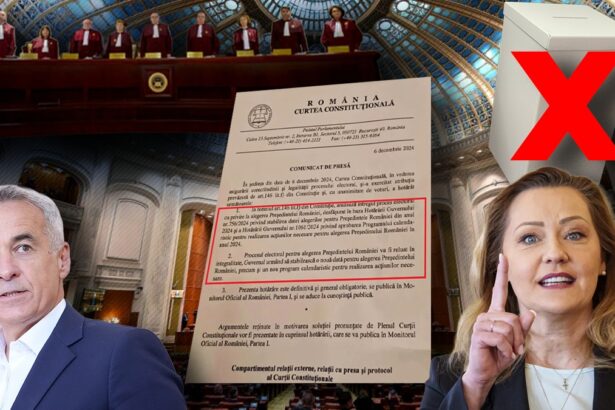 R O M Â N I A
CURTEA CONSTITUŢIONALĂ
Palatul Parlamentului
6 decembrie 2024
COMUNICAT DE PRESĂ
În şedinţa din data de 6 decembrie 2024, Curtea Constituţională, în vederea
asigurării corectitudinii şi legalităţii procesului electoral, şi-a exercitat atribuţia
prevăzută de art.146 lit.f) din Constituţie şi, cu unanimitate de voturi, a hotărât
următoarele:
cu privire la alegerea Preşedintelui României, desfăşurat în baza Hotărârii Guvernului
nr.756/2024 privind stabilirea datei alegerilor pentru Preşedintele României din anul
2024 şi a Hotărârii Guvernului nr.1061/2024 privind aprobarea Programului calenda-
ristic pentru realizarea acţiunilor necesare pentru alegerea Preşedintelui României în
anul 2024.
2. Procesul electoral pentru alegerea Preşedintelui României va fi reluat în
integralitate, Guvernul urmând să stabilească o nouă dată pentru alegerea Preşedintelui
României, precum şi un nou program calendaristic pentru realizarea acţiunilor nece-
sare.
3. Prezenta hotărâre este definitivă şi general obligatorie, se publică în Mo-
nitorul Oficial al României, Partea I, şi se aduce la cunoştinţă publică.
Argumentele reţinute în motivarea soluţiei pronunţate de Plenul Curţii
Constituţionale vor fi prezentate în cuprinsul hotărârii, care se va publica în Monitorul
Oficial al României, Partea I.
Compartimentul relaţii externe, relaţii cu presa şi protocol
al Curţii Constituţionale